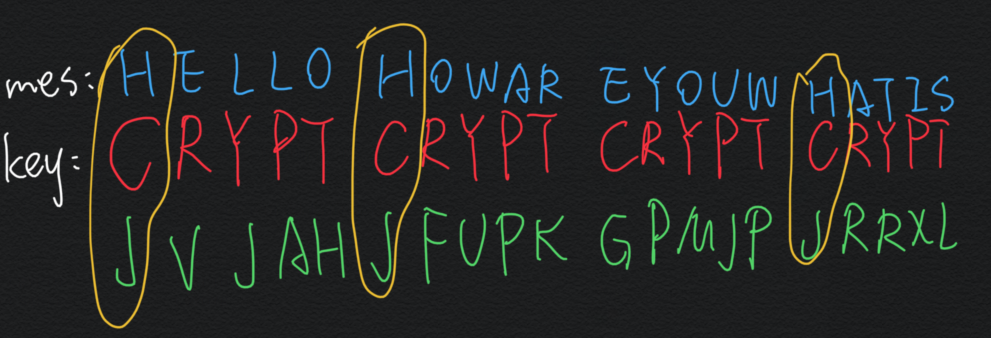 mes: HELLO HOWAR EYOUW HATIS
key: CRYPT CRYPT CRYPT CRYPT
JVJAH JFUPK GPMJP JRRXL